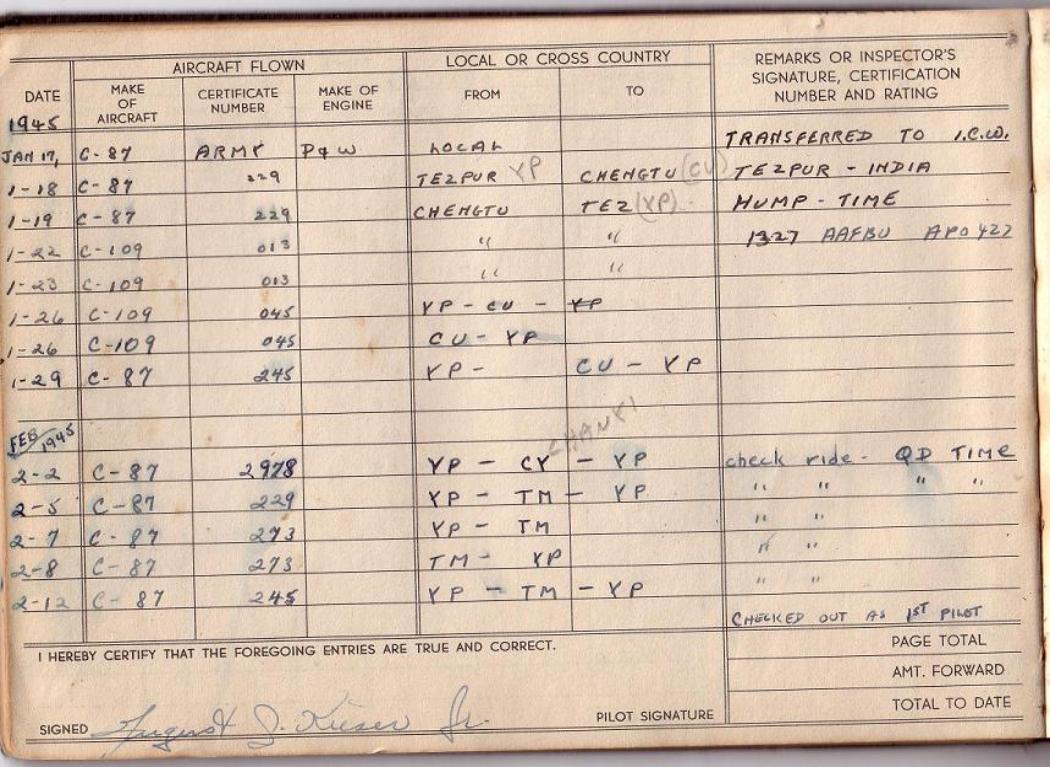 AIRCRAFT FLOWN LOCAL OR CROSS COUNTRY REMARKS OR INSPECTOR'S SIGNATURE, CERTIFICATION NUMBER AND RATING
DATE MAKE OF AIRCRAFT CERTIFICATE NUMBER MAKE OF ENGINE FROM TO
1945
JAN 17, C-87 ARMY P&W LOCAL TRANSFERRED TO I.C.W.
1-18 C-87 229 TEZPUR YP CHENGTU (CU) TEZPUR - INDIA
1-19 C-87 229 CHENGTU TEZ (YP) HUMP - TIME
1-22 C-109 013 " " 1327 AAFBU APO 427
1-23 C-109 013 " "
1-26 C-109 045 YP - CU - YP
1-26 C-109 045 CU - YP
1-29 C-87 245 YP - CU - YP
FEB/1945 CHANKI
2-2 C-87 2978 YP - CY - YP check ride - QD TIME
2-5 C-87 229 YP - TM - YP " " " "
2-7 C-87 273 YP - TM " "
2-8 C-87 273 TM - YP " "
2-12 C-87 245 YP - TM - YP " "
CHECKED OUT AS 1ST PILOT
I HEREBY CERTIFY THAT THE FOREGOING ENTRIES ARE TRUE AND CORRECT. PAGE TOTAL
AMT. FORWARD
SIGNED August J. Kieser Jr. PILOT SIGNATURE TOTAL TO DATE